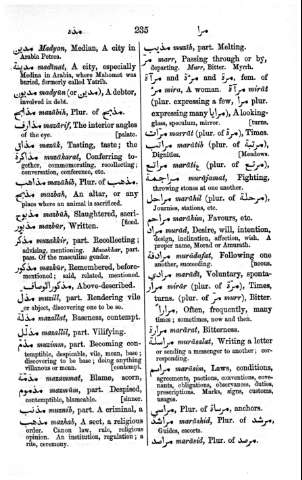 مدد
235
مرا
مدين Madyan, Median, A city in
Arabia Petrea.
madīnat, A city, especially
Medina in Arabia, where Mahomet was
buried, formerly called Yatrib.
مديون madyūn (or مدين), A debtor,
involved in debt.
مذابح mazābih, Plur. of مذبح.
مذارف mazārif, The interior angles
of the eye. [palate.
مذاق mazāk, Tasting, taste; the
مذاكرة muzākarat, Conferring to-
gether, commemorating, recollecting;
conversation, conference, etc.
مذاهب mazāhib, Plur. of مذهب.
مذبح mazbah, An altar, or any
place where an animal is sacrificed.
مذبوح mazbūh, Slaughtered, sacri-
مذبور mazbūr, Written. [ficed.
مذكر muzakkir, part. Recollecting;
advising, mentioning. Muzakkar, part.
pass. Of the masculine gender.
مذكور mazkūr, Remembered, before-
mentioned; said, related, mentioned.
مذكور الوصف, Above-described.
مذل muzill, part. Rendering vile
or abject, discovering one to be so.
مذلت mazallat, Baseness, contempt.
مذلل muzallil, part. Vilifying.
part. Becoming con-
temptible, despicable, vile, mean, base;
discovering to be base; doing anything
villanous or mean. [contempt.
مذمت mazammat, Blame, scorn,
مذموم mazmūm, part. Despised,
contemptible, blameable. [sinner.
مذنب muznib, part. A criminal, a
مذهب mazhab, A sect, a religious
order. Canon law, rule, religious
opinion. An institution, regulation; a
rite, ceremony.
مذيب muzīb, part. Melting.
مر marr, Passing through or by,
departing. Murr, Bitter. Myrrh.
مرأة and مرة and مراة, fem. of
مرء mira, A woman. مرآة mirāt
(plur. expressing a few, مراء plur.
expressing many مرايا), A looking-
glass, speculum, mirror. [turns.
مرات marrāt (plur. of مرة), Times,
مراتب marātib (plur. of مرتبة),
Dignities. [Meadows.
مراتع marātiɛ, (plur. of مرتع),
مراجمة murājamat, Fighting,
throwing stones at one another.
مراحل marāhil (plur. of مرحلة),
Journies, stations, etc.
مراحم marāhim, Favours, etc.
مراد murād, Desire, will, intention,
design, inclination, affection, wish. A
proper name, Morad or Amurath.
مرادفة murādafat, Following one
another, succeeding. [neous.
Voluntary, sponta-
مرار mirār (plur. of مرة), Times,
turns. (plur. of مر murr), Bitter.
مرارا, Often, frequently, many
times; sometimes, now and then.
مرارت marārat, Bitterness.
مراسلة murāsalat, Writing a letter
or sending a messenger to another; cor-
responding.
مراسم marāsim, Laws, conditions,
agreements, pactions, conventions, cove-
nants, obligations, observances, duties,
prescriptions. Marks, signs, customs,
usages.
مراسي, Plur. of مرساة, anchors.
مراشد marāshid, Plur. of مرشد,
Guides, escorts.
مراصد marāsid, Plur. of مرصد.